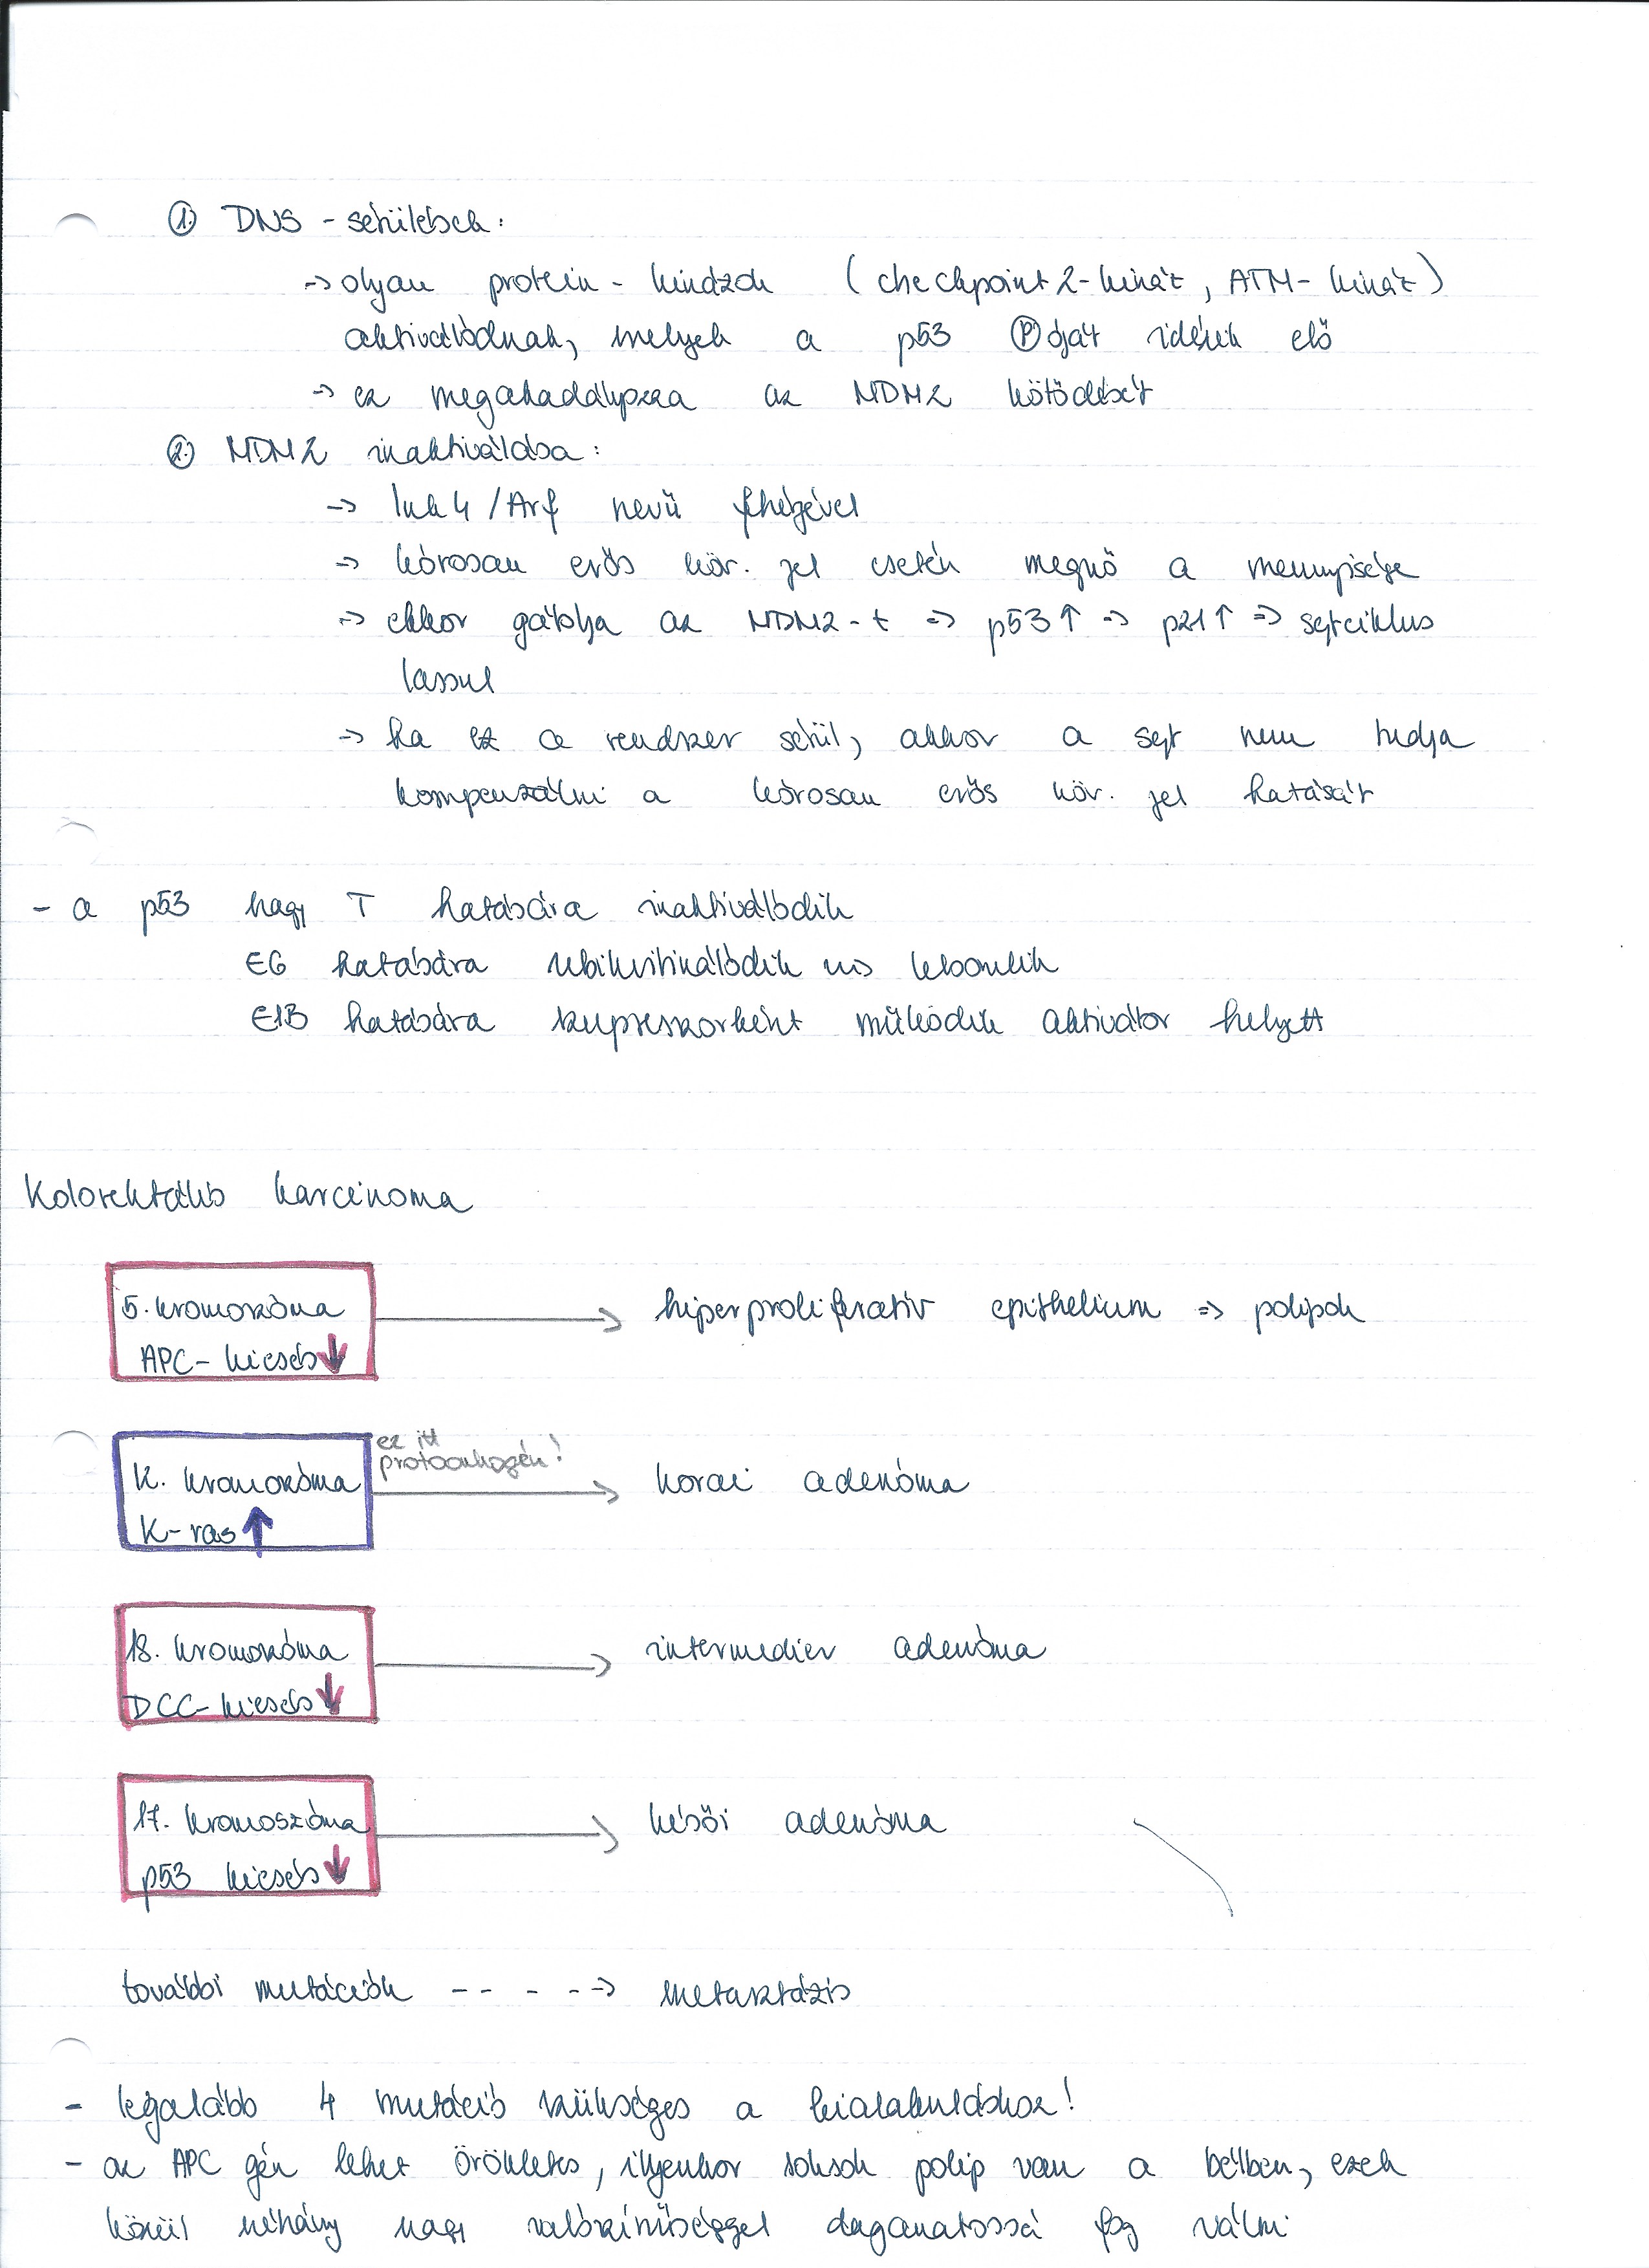 ① DNS - sérülések:
→ olyan protein - kinázok (checkpoint 2-kináz, ATM-kináz)
aktiválódnak, melyek a p53 Ⓟ-óját idézik elő
→ ez megakadályozza az MDM2 kötődését
② MDM2 inaktiválása:
→ Ink4/Arf nevű fehérjével
→ kórosan erős növ. jel esetén megnő a mennyisége
→ ekkor gátolja az MDM2-t => p53↑ => p21↑ => sejtciklus
lassul
→ ha ez a rendszer sérül, akkor a sejt nem tudja
kompenzálni a kórosan erős növ. jel hatását
- a p53 nagy T hatására inaktiválódik
E6 hatására ubikvitinálódik és lebomlik
E1B hatására szupresszorként működik aktivátor helyett
Kolorektális karcinoma
5. kromoszóma → hiperproliferatív epithelium => polipok
APC-kiesés↓
ez itt
protoonkogén!
K. kromoszóma → korai adenóma
K-ras↑
18. kromoszóma → intermedier adenóma
DCC-kiesés↓
17. kromoszóma → késői adenóma
p53 kiesés↓
további mutációk - - - - → metasztázis
- legalább 4 mutáció szükséges a kialakuláshoz!
- az APC gén lehet örökletes, ilyenkor soksok polip van a bélben, ezek
közül néhány nagy valószínűséggel daganatossá fog válni